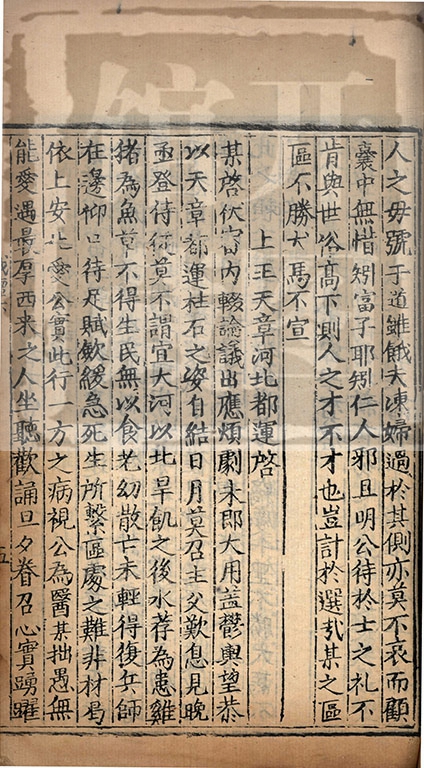 人之毋號于道雖餓夫凍婦過於其側亦莫不哀而顧
囊中無惜矧富子耶矧仁人邪且明公待於士之礼不
肯與世俗高下則人之才不才也豈計於選㢤某之區
區不勝犬馬不宣
上王天章河北都運啓
某啓伏審內輟論議出應煩劇未即大用盖鬱輿望恭
以天章都運柱石之姿自結日月莫召主父歎息見晚
亟登待從莫不謂宜大河以北旱飢之後水荐為患雞
猪為魚草不得生民無以食老幼散亡未輕得復兵師
在邊仰口待足賦斂緩急死生所繫區處之難非材曷
依上安北愛公實此行一方之病視公為醫某拙愚無
能愛遇最厚西来之人坐聽歡誦旦夕眷召心實踴躍
五